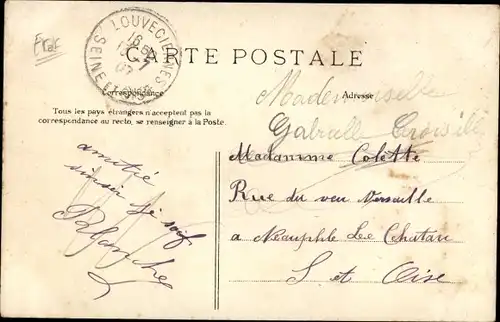 Frar
LOUVECIENNES
16
07
SEINE
CARTE POSTALE
Correspondance
Adresse
Tous les pays étrangers n'acceptent pas la
correspondance au recto, se renseigner à la Poste.
Mademoiselle
Gabrielle
Madamme Colette
Rue du veu Versaille
a Neauphle Le Chatau
S et Oise
amitié